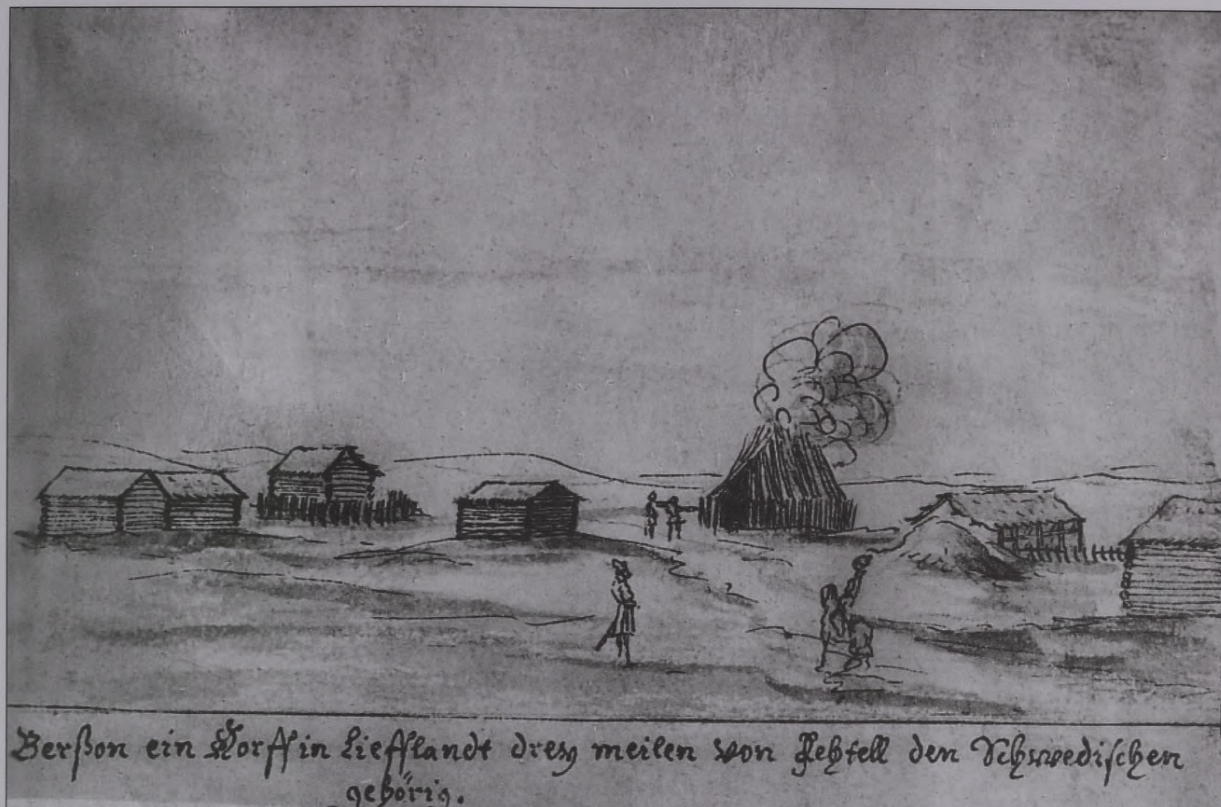 Berßon ein Dorff in Liefflandt drey meilen von Fehtell den Schwedischen
gehörig.